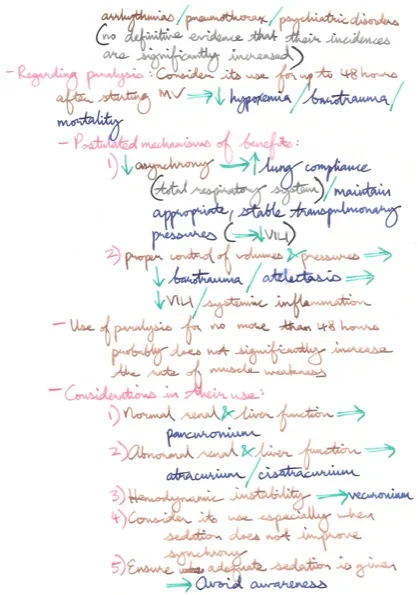 arrhythmias / pneumothorax / psychiatric disorders
(no definitive evidence that their incidences
are significantly increased)
- Regarding paralysis: Consider its use for up to 48 hours
after starting MV → ↓ hypoxemia / barotrauma /
mortality
- Postulated mechanisms of benefits:
1) ↓ asynchrony → ↑ lung compliance
(total respiratory system) / maintain
appropriate, stable transpulmonary
pressures (→ ↓ VILI)
2) proper control of volumes & pressures →
↓ barotrauma / atelectasis →
↓ VILI / systemic inflammation
- Use of paralysis for no more than 48 hours
probably does not significantly increase
the rate of muscle weakness
- Considerations in their use:
1) Normal renal & liver function →
pancuronium
2) Abnormal renal & liver function →
atracurium / cisatracurium
3) Hemodynamic instability → vecuronium
4) Consider its use especially when
sedation does not improve
synchrony
5) Ensure adequate sedation is given
→ Avoid awareness